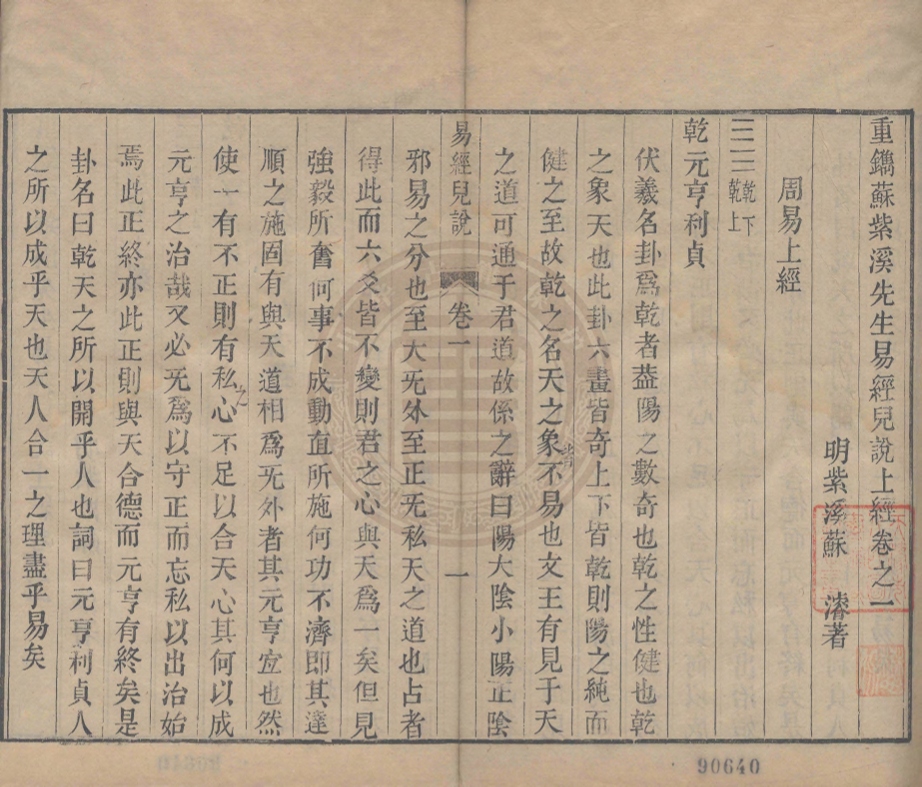 重鐫蘇紫溪先生易經兒說上經卷之一
明紫溪蘇 濬著
周易上經
乾下
乾上
乾元亨利貞
伏羲名卦爲乾者葢陽之數奇也乾之性健也乾
之象天也此卦六畫皆奇上下皆乾則陽之純而
健之至故乾之名天之象不易也文王有見于天
之道可通于君道故係之辭曰陽大陰小陽正陰
易經兒說 卷一 一
邪易之分也至大旡外至正旡私天之道也占者
得此而六爻皆不變則君之心與天爲一矣但見
強毅所奮何事不成動直所施何功不濟即其達
順之施固有與天道相爲旡外者其元亨宜也然
使一有不正則有私之心不足以合天心其何以成
元亨之治哉又必旡爲以守正而忘私以出治始
焉此正終亦此正則與天合德而元亨有終矣是
卦名曰乾天之所以開乎人也詞曰元亨利貞人
之所以成乎天也天人合一之理盡乎易矣
90640